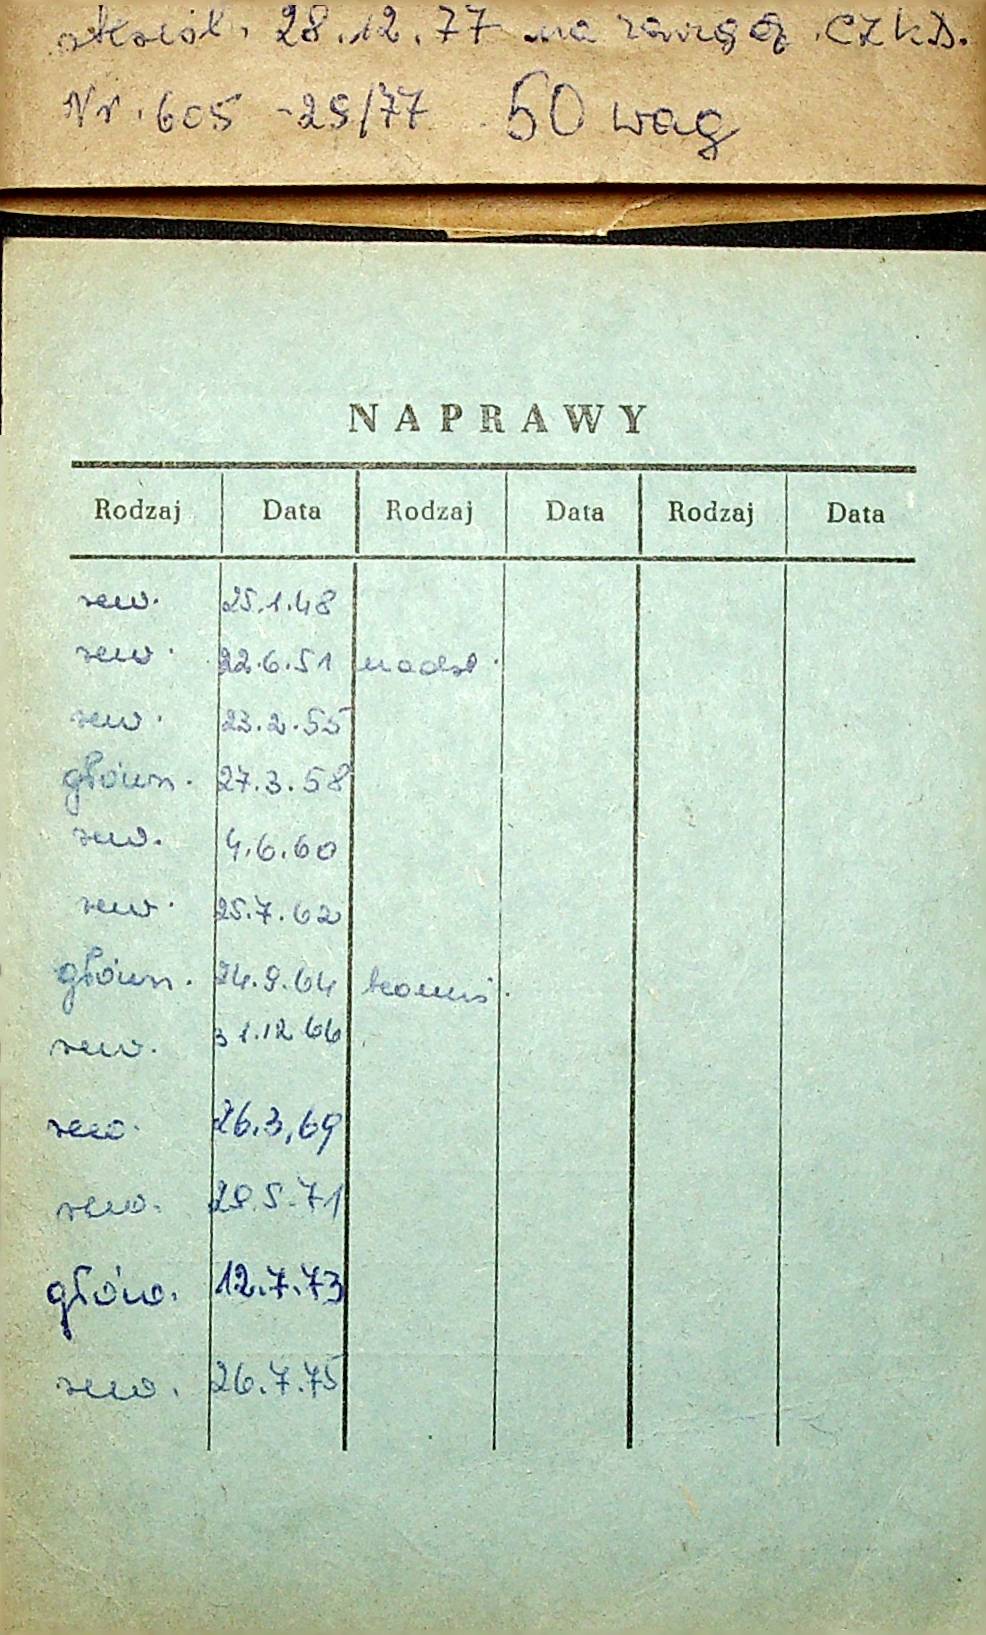 skreśl. 28.12.77 na zarząd. CZKD.
Nr. 605-25/77 50 wag
NAPRAWY
Rodzaj Data Rodzaj Data Rodzaj Data
rew. 25.1.48
rew. 22.6.51 nadzl.
rew. 23.2.55
główn. 27.3.58
rew. 4.6.60
rew. 25.7.62
główn. 24.9.64
rew. 31.12 66
rew. 26.3,69
rew. 29.5.71
główn. 12.7.73
rew. 26.7.75